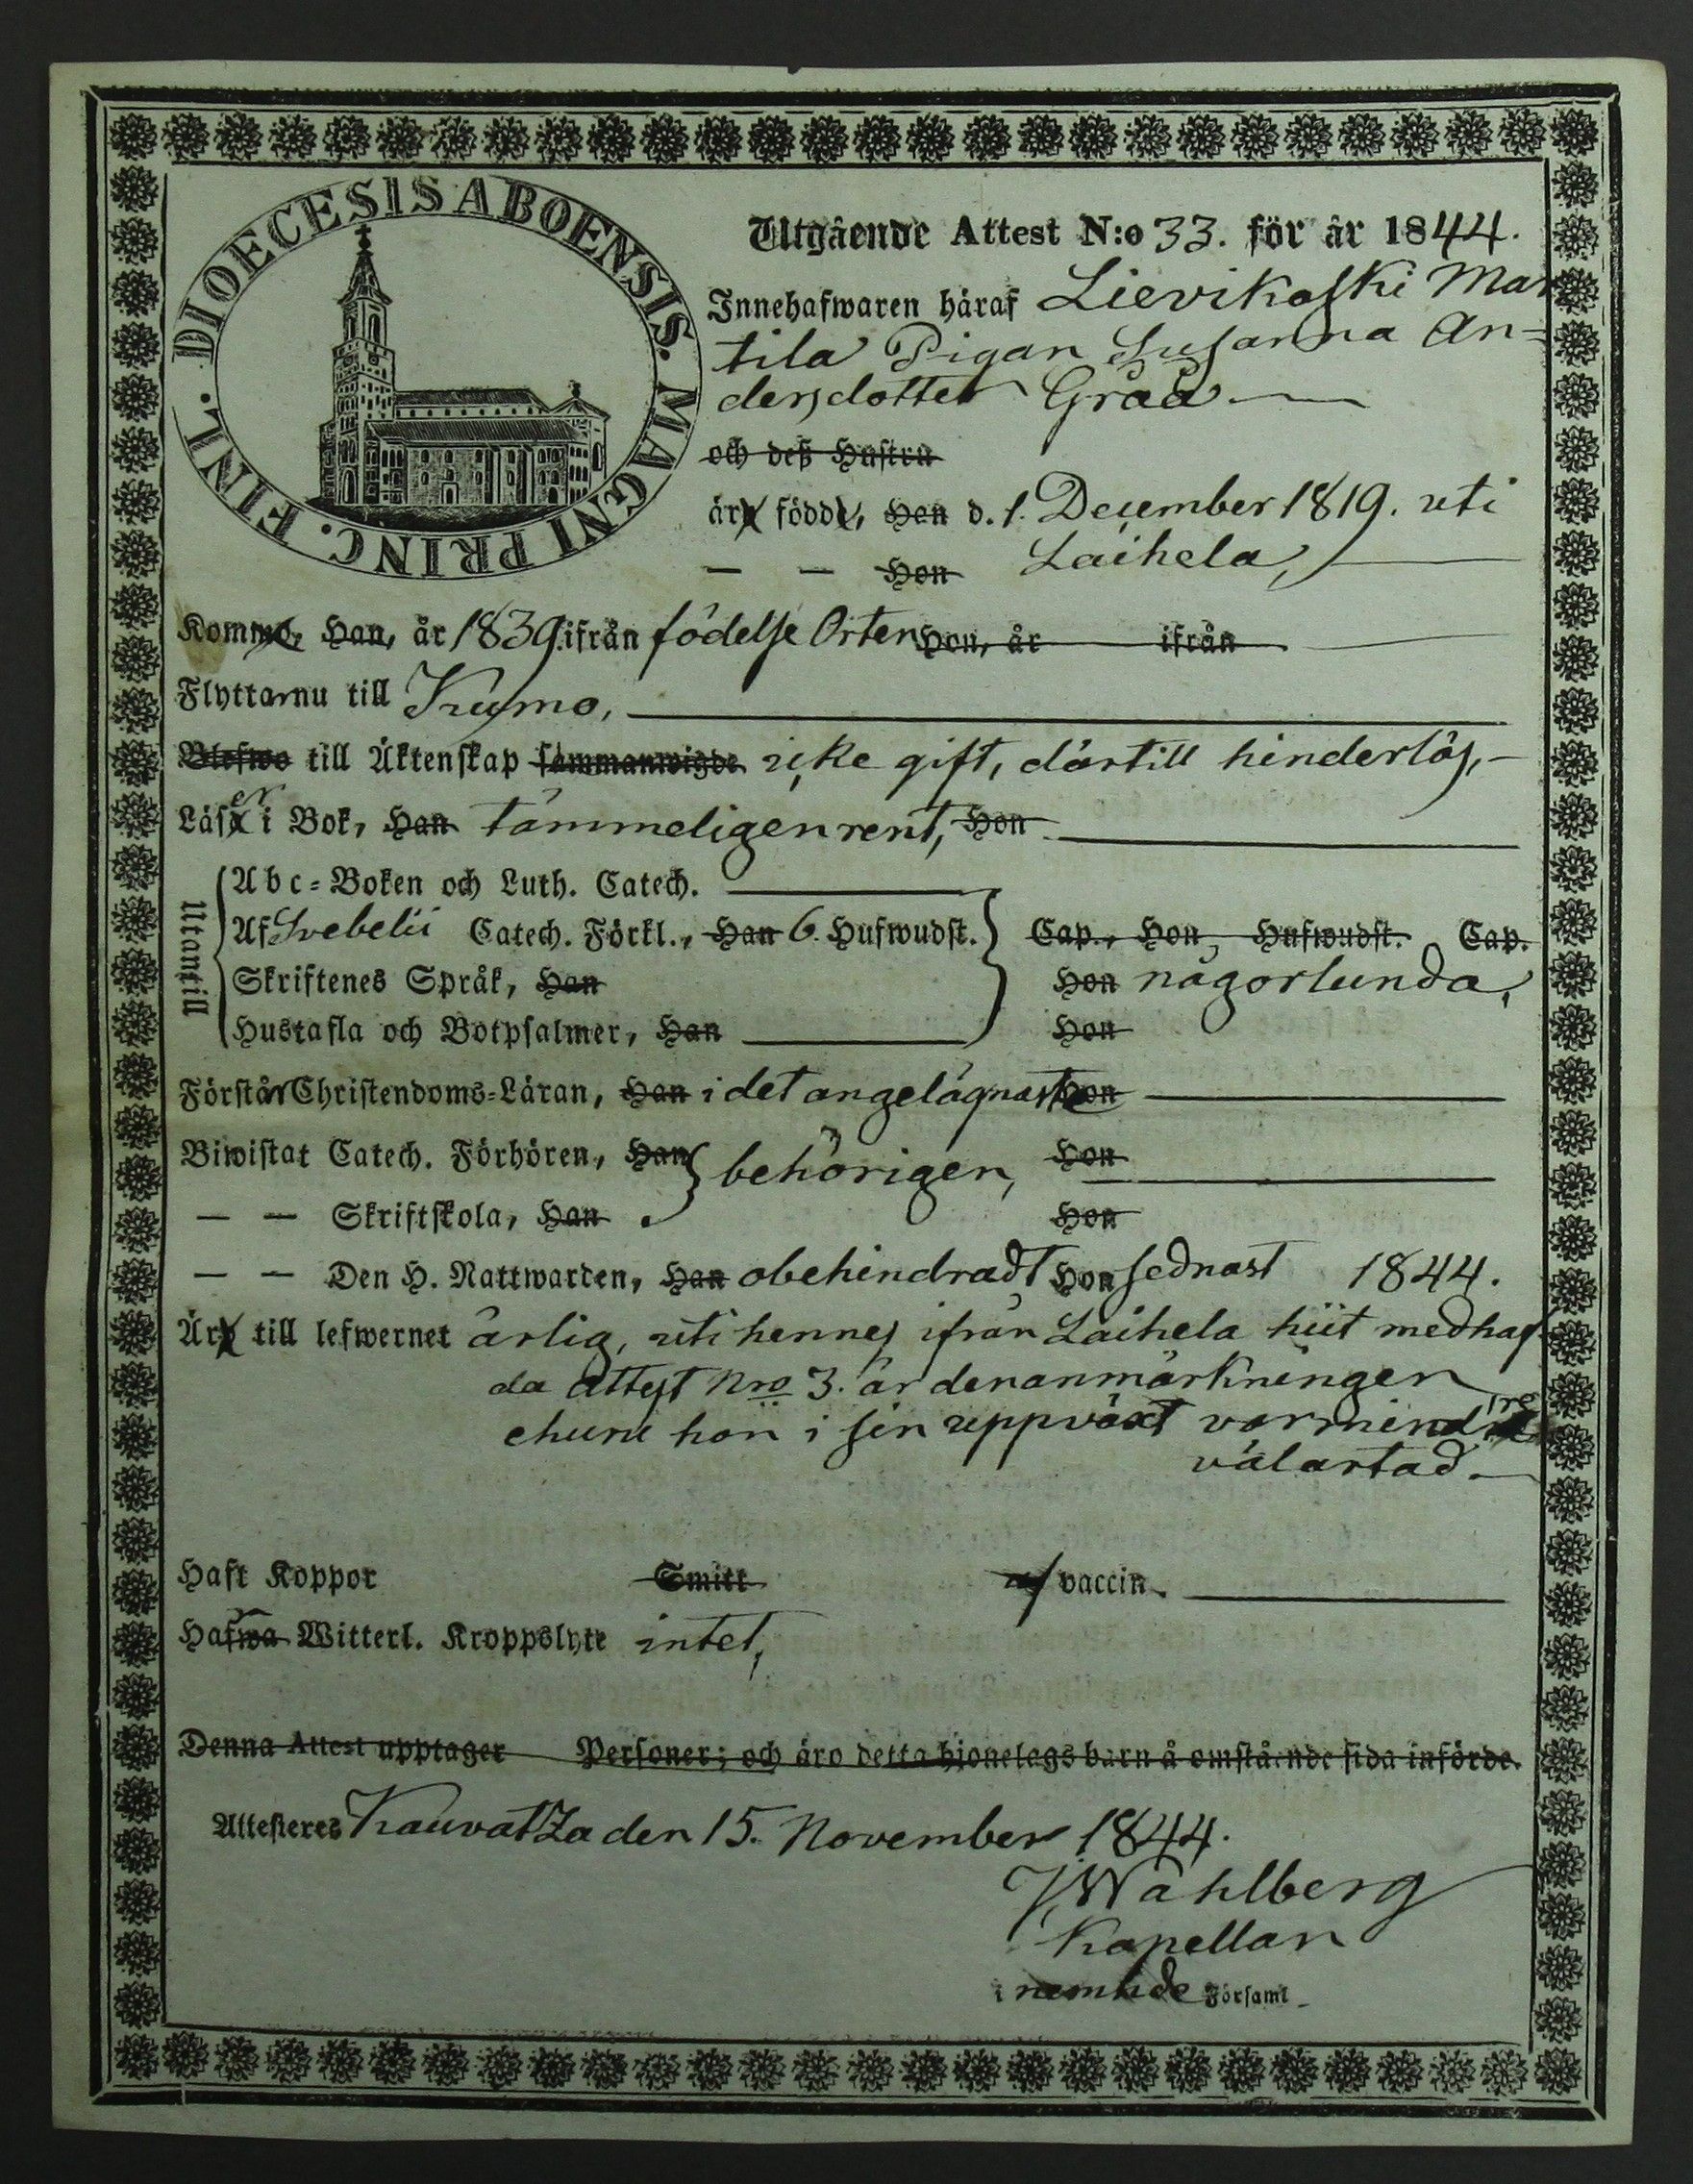 DIOECESIS ABOENSIS. MAGNI PRINC. FINL.
Utgående Attest N:o 33. för år 1844.
Innehafwaren häraf Lievikoski Mar
tila Pigan Susanna An=
dersdotter Gråå
och deß Hustru
äro födde, Han d. 1. December 1819. uti
— — Hon Laihela,
Komne, Han, år 1839. ifrån födelse Orten Hon, år ifrån
Flyttar nu till Kumo,
Blefwo till Äktenskap sammanwigde icke gift, därtill hinderlös,
Läser i Bok, Han tämmeligen rent, Hon
Utantill
Abc=Boken och Luth. Catech.
Af Svebelii Catech. Förkl., Han 6. Hufwudst. Cap., Hon, Hufwudst. Cap.
Skriftenes Språk, Han Hon någorlunda,
Hustafla och Botpsalmer, Han Hon
Förstår Christendoms=Läran, Han i det angelägnaste Hon
Biwistat Catech. Förhören, Han behörigen, Hon
— — Skriftskola, Han Hon
— — Den H. Nattwarden, Han obehindradt Hon sednast 1844.
Äro till lefwernet ärlig, uti hennes ifrån Laihela hiit medhaf
da attest Nro 3. är den anmärkningen
ehuru hon i sin uppväxt var mindre
välartad.
Haft Koppor Smitt af vaccin.
Hafwa Witterl. Kroppslyte intet,
Denna Attest upptager Personer; och äro detta hjonelags barn å omstående sida införde.
Attesteres Kauvatza den 15. November 1844.
J. Wahlberg
Kapellan
i nemnde Församl.